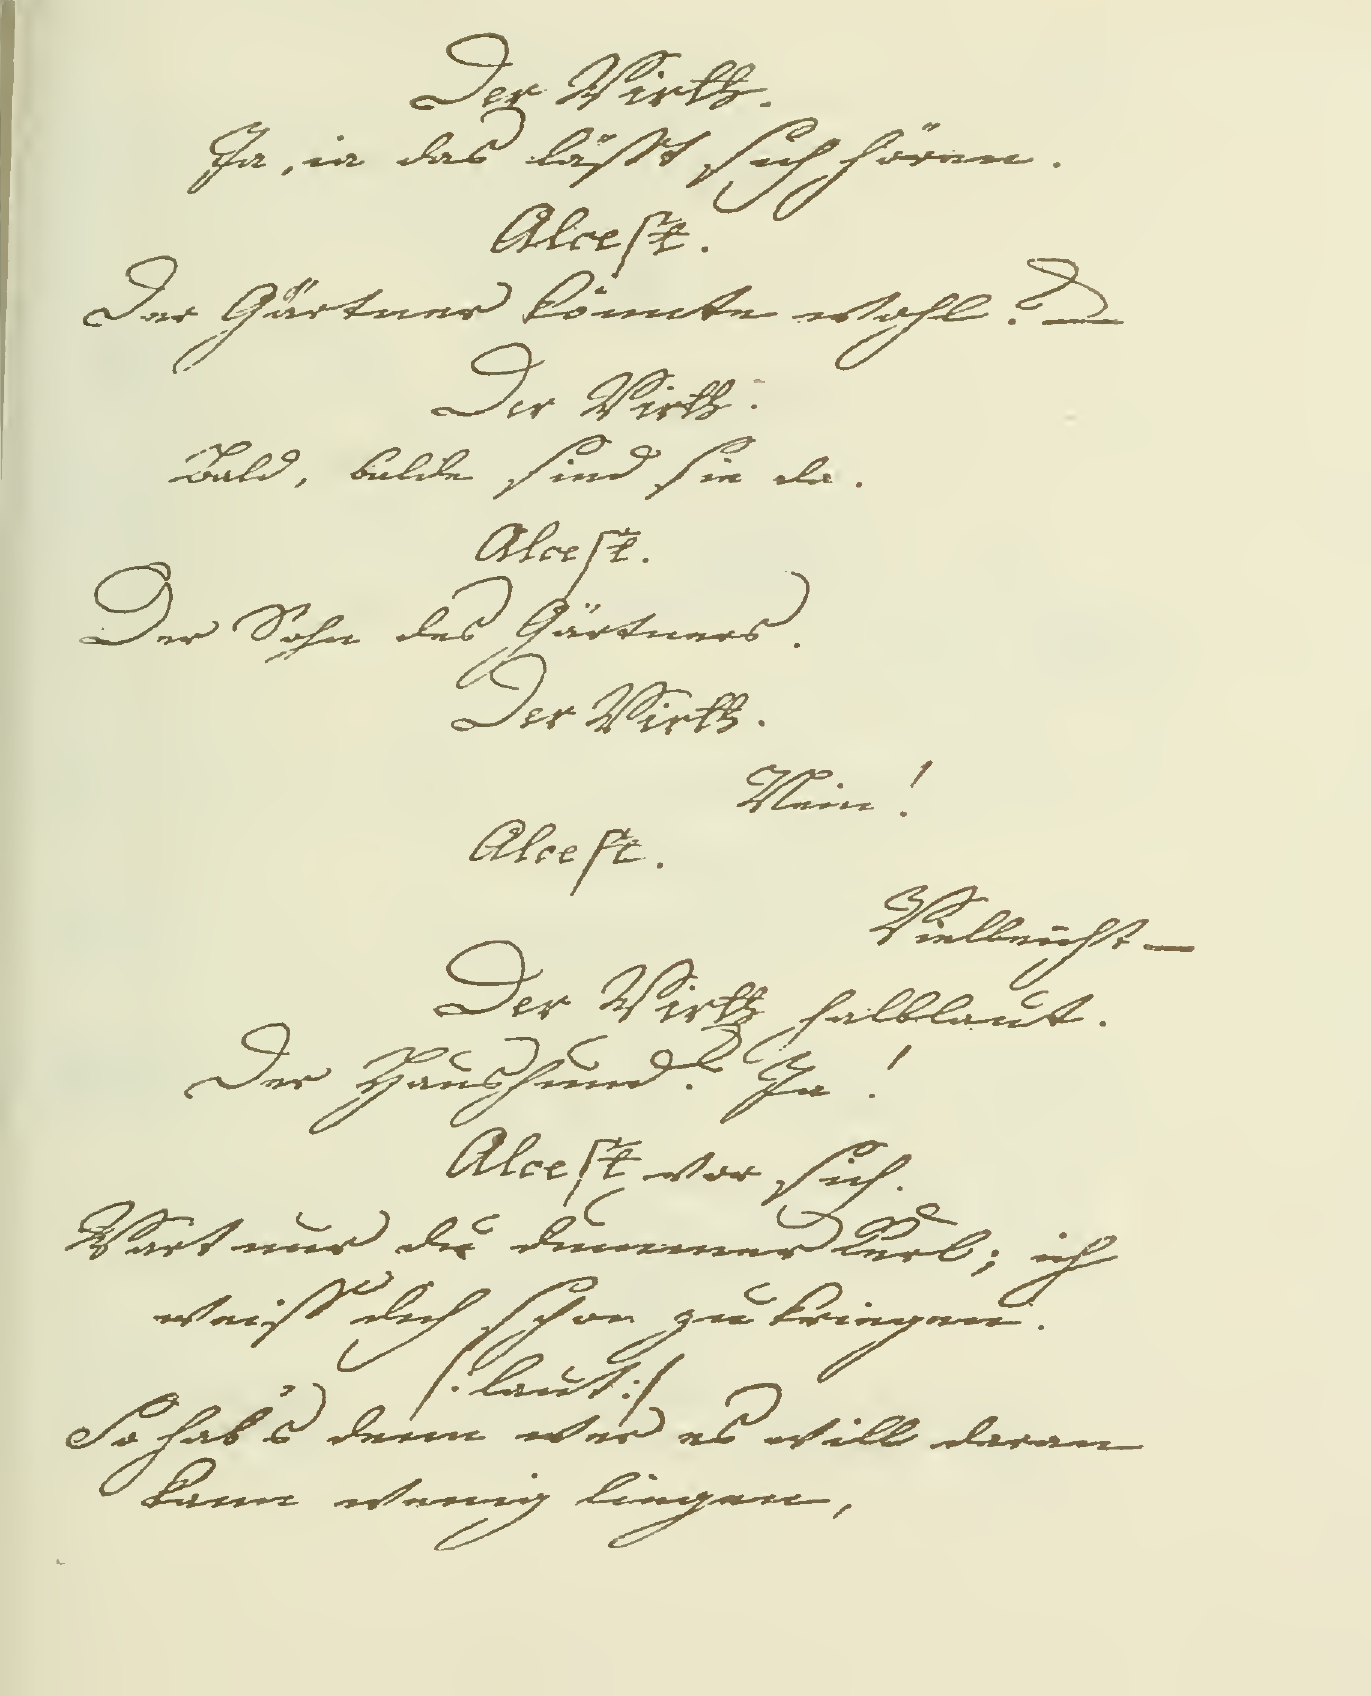 Der Wirth.
Ja, ia das läßt sich hören.
Alcest.
Der Gärtner könnte wohl? —
Der Wirth.
Bald, balde sind sie da.
Alcest.
Der Sohn des Gärtners.
Der Wirth.
Nein!
Alcest.
Vielleicht—
Der Wirth halblaut.
Der Haushund? Ja!
Alcest vor sich.
Wart nur du dummer Kerl; ich
weiß dich schon zu kriegen.
/: laut :/
So hab's denn wer es will daran
kann wenig liegen,